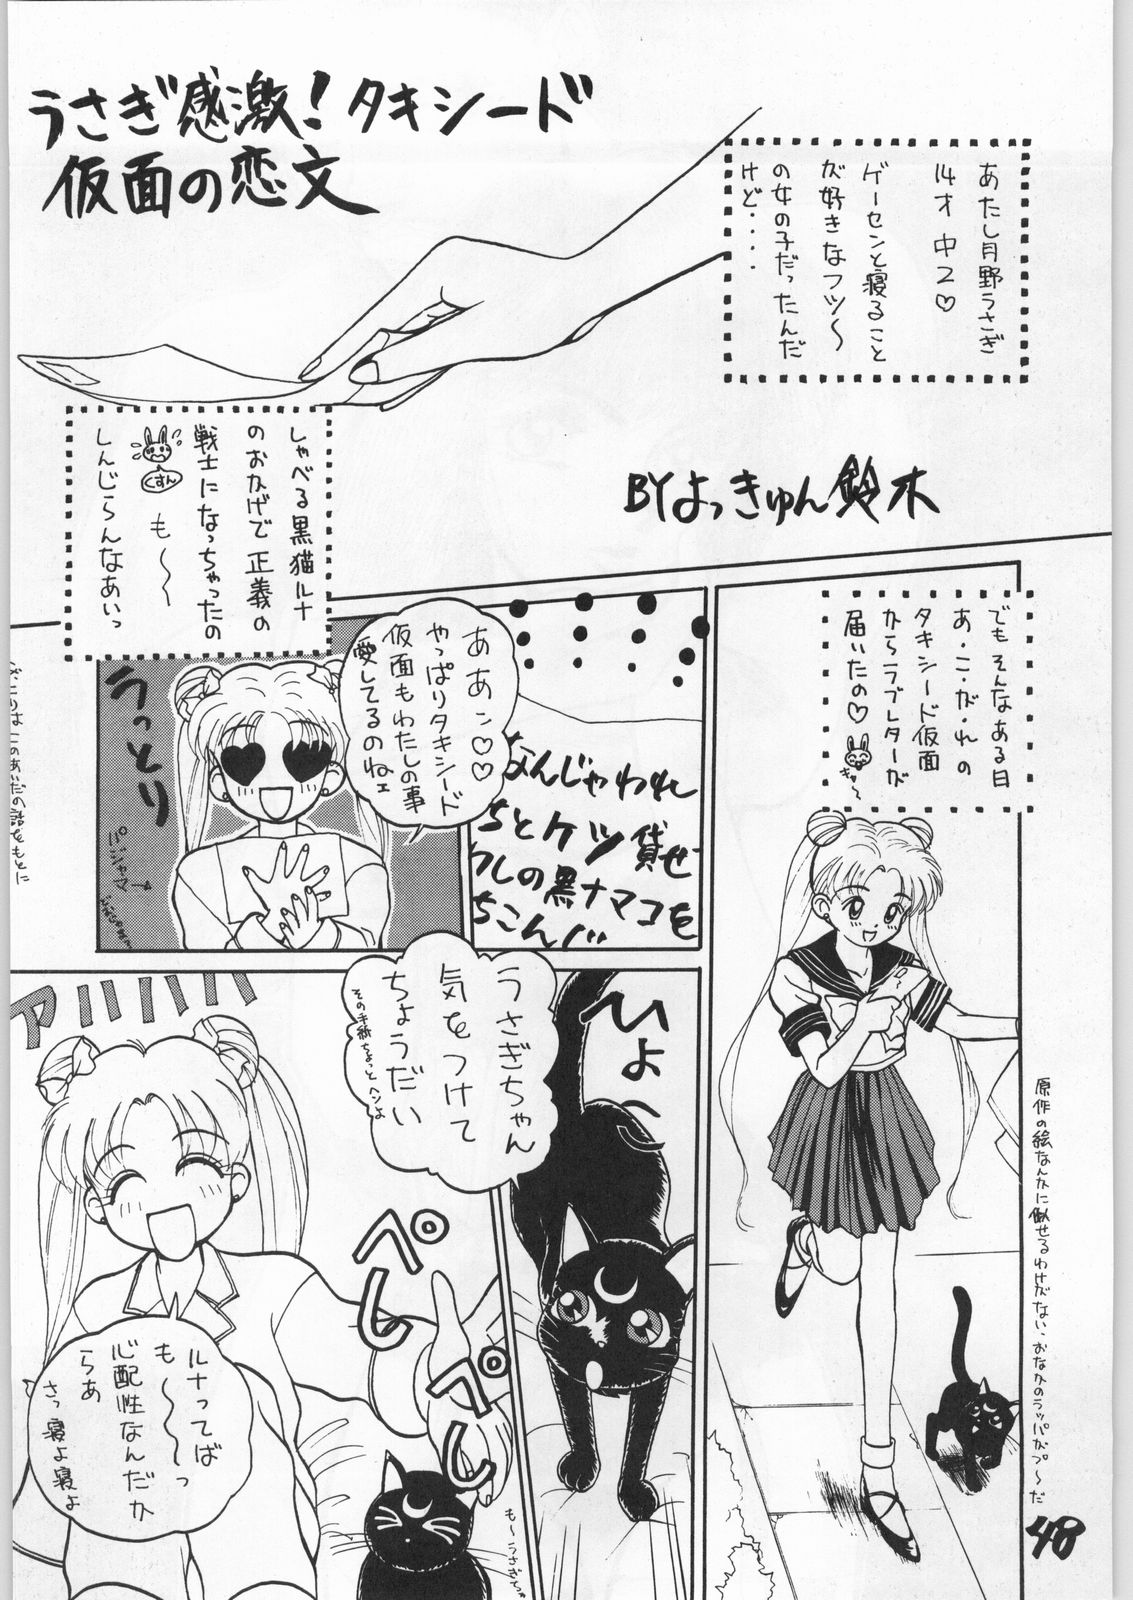 うさぎ感激!タキシード
仮面の恋文
あたし月野うさぎ
14才 中2♡
ゲーセンと寝ること
が好きなフツ〜
の女の子だったんだ
けど・・・・
しゃべる黒猫ルナ
のおかげで正義の
戦士になっちゃったの
くすん
も〜〜
しんじらんなあいっ
BYよっきゅん鈴木
でもそんなある日
あ・こ・が・れの
タキシード仮面
からラブレターが
届いたの♡
原作の絵なんかに似せるわけがない、おなかのラッパがプ〜だ
なんじゃわれ
ちとケツ貸せ
ワレの黒ナマコを
ちこんバ
ああン♡♡
やっぱりタキシード
仮面もわたしの事
愛してるのねェ
うっとり
パジャマ→
このあいだの話をもとに
ひょ〜
うさぎちゃん
気をつけて
ちょうだい
その手紙ちょっとヘンよ
アハハハハ
ルナってば
も〜〜っ
心配性なんだか
らあ
さっ寝よ寝よ
ペしペし
も〜うさぎてば
48